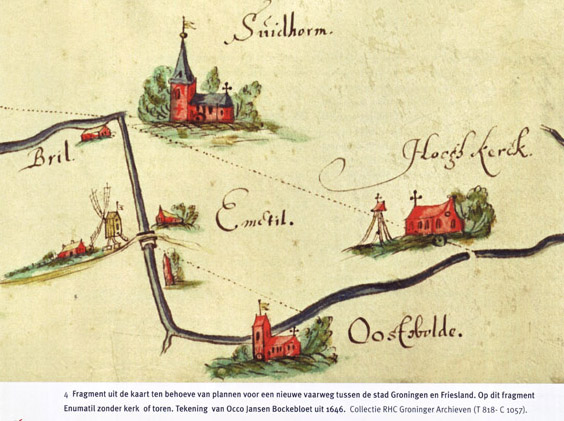 Suidhorm.
Bril.
Hoogh kerck.
Emetil.
Oostebolde.
4 Fragment uit de kaart ten behoeve van plannen voor een nieuwe vaarweg tussen de stad Groningen en Friesland. Op dit fragment
Enumatil zonder kerk of toren. Tekening van Occo Jansen Bockebloet uit 1646. Collectie RHC Groninger Archieven (T 818- C 1057).